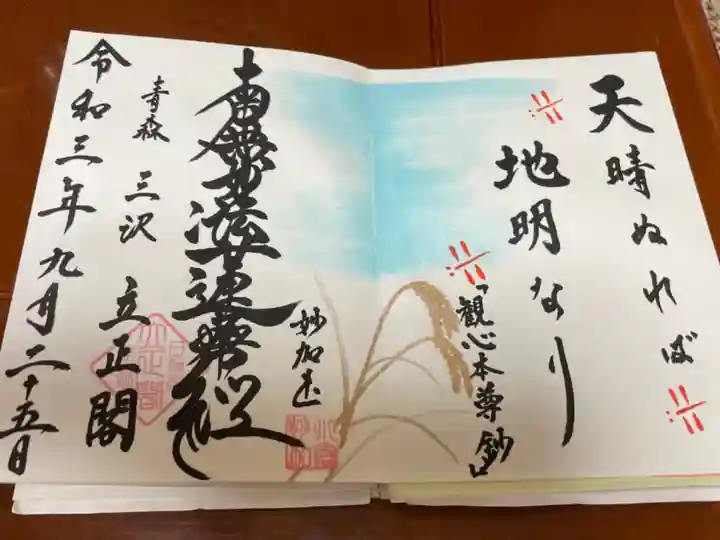 天晴ぬれば
地明なり
「観心本尊鈔」
妙加速
南無妙法蓮華経
青森 三沢 立正閣
令和三年九月二十五日